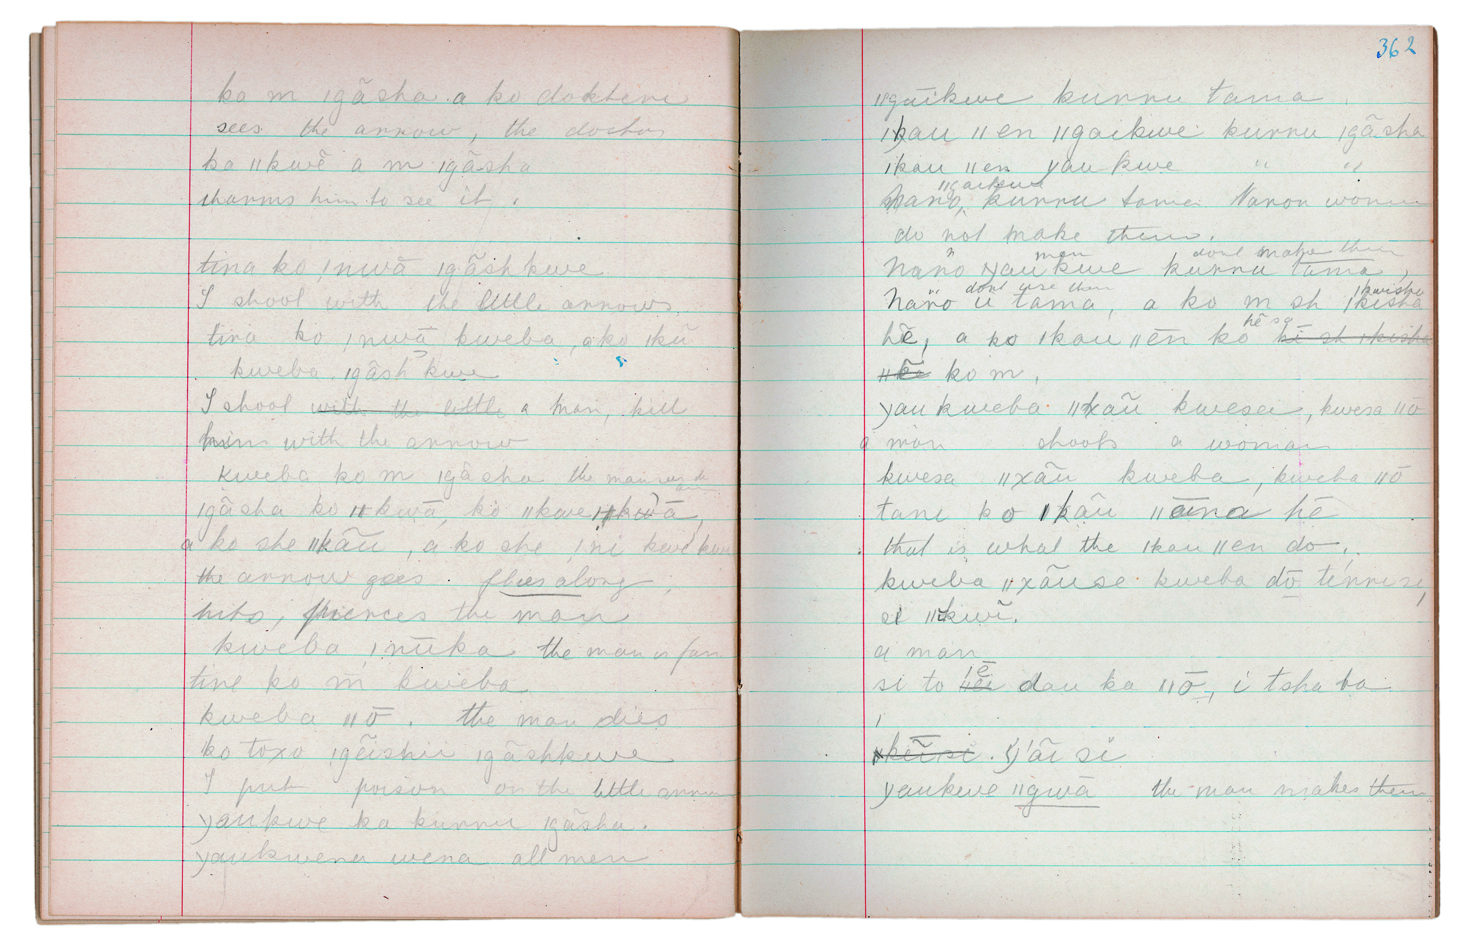 ko m ıgãsha a ko dokteri
sees the arrow, the doctor
ko ıı kwẽ a m ıgãsha
charms him to see it.
tina ko ǃnwā ıgãshkwe
I shoot with the little arrows
tina ko ǃnwā kweba, a ko ıkũ
kweba ıgãsh kwe
I shoot with the little a man, kill
him with the arrow
kweba ko m ıgãsha the man
ıgãsha ko ıı kwā, ko ıı kwe ıı kwā,
a ko she ıı kãũ, a ko she ǃni kwe
the arrow goes flies along,
hits, pierces the man
kweba ǃnūka the man is far
tine ko m kweba
kweba ıı ō. the man dies
ko toxo ıgãishii ıgãshkwe
I put poison on the little arrow
yaukwe ka kurru ıgãsha.
yaukwena wena all men
362
ıı gaikwe kurru tama.
ıkau ıı en ıı gaikwe kurru ıgãsha
ıkau ıı en yau kwe " "
ıı gaikwe
Naro, kurru tama Naron women
do not make them.
men dont make them
Naro yaukwe kurru tama,
dont use them ıkwisha
Naro ũ tama, a ko m sh ıkisha
hē sa
hẽ, a ko ıkau ıı ēn ko hē sh ıkisha
ko m.
yau kweba ıı xaũ kwesa, kwesa ıı ō
a man shoots a woman
kwesa ıı xãũ kweba, kweba ıı ō
tane ko ıkãũ ıı āna hē
that is what the ıkau ıı en do.
kweba ıı xãuse kweba dō tenrise,
si ıı kwĩ.
a man
ē
si to dau ka ıı ō, i tsha ba
ı
kẽĩsi. y'ãi si
yaukwe ıı gwā the man makes them